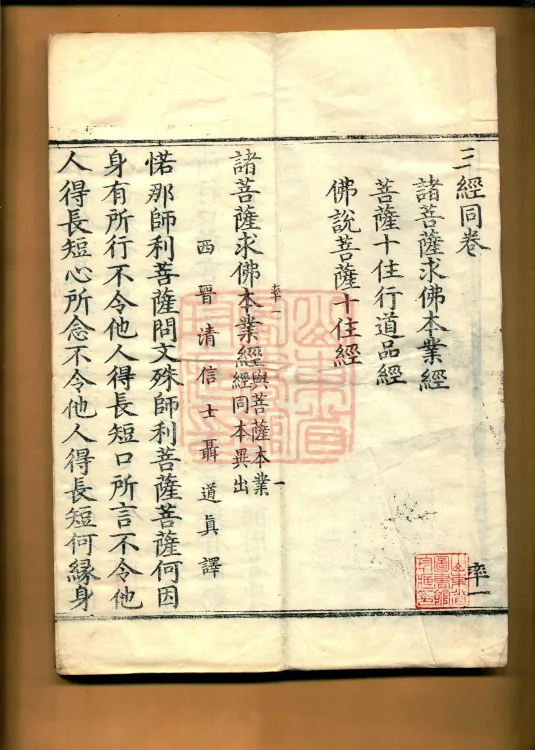 三經同卷
諸菩薩求佛本業經
菩薩十住行道品經
佛說菩薩十住經
率一
率一
一
諸菩薩求佛本業經與菩薩本業
經同本異出
西晉清信士聶道真譯
惒那師利菩薩問文殊師利菩薩菩薩何因
身有所行不令他人得長短口所言不令他
人得長短心所念不令他人得長短何緣身
山東省
圖書館